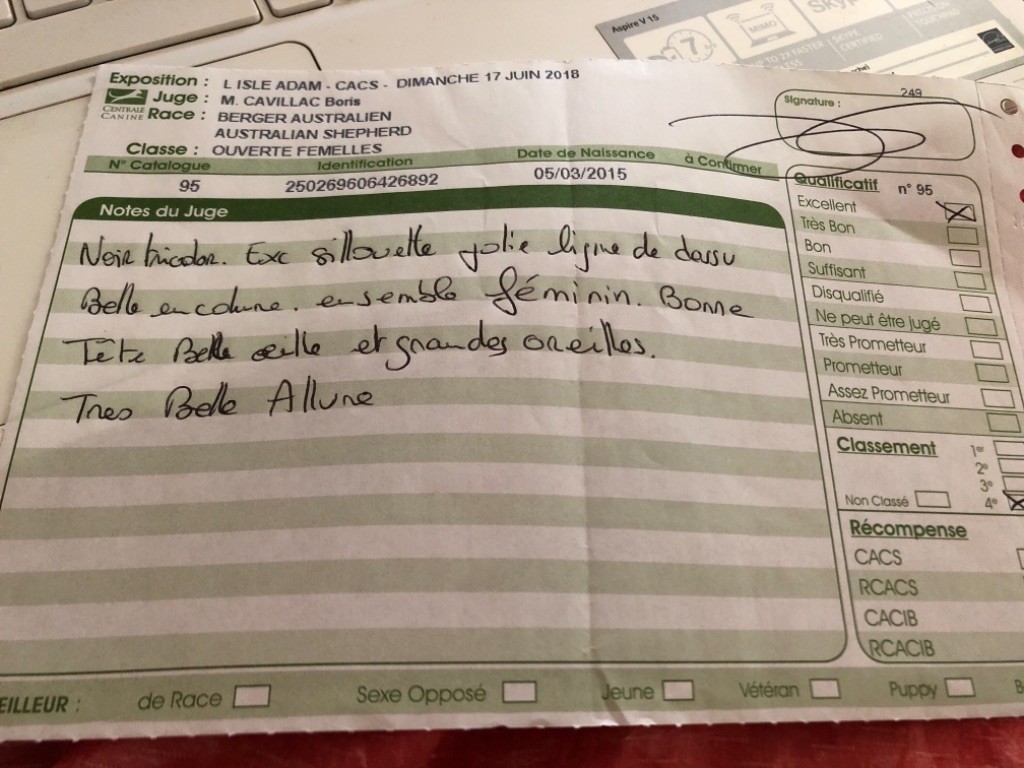 Aspire V 15
7
MIMO
Sky
UP TO 2X FASTER
SKYPE
CERTIFIED
Exposition : L ISLE ADAM - CACS - DIMANCHE 17 JUIN 2018
Juge : M. CAVILLAC Boris
CENTRALE
CANINE
Race : BERGER AUSTRALIEN
AUSTRALIAN SHEPHERD
Classe : OUVERTE FEMELLES
249
Signature :
N° Catalogue Identification Date de Naissance à Confirmer
95 250269606426892 05/03/2015
Notes du Juge
Noir tricolor. Exc sillouette jolie ligne de dessu
Belle encolure. ensemble féminin. Bonne
Tête Belle oeille et grandes oreilles.
Tres Belle Allure
Qualificatif n° 95
Excellent
Très Bon
Bon
Suffisant
Disqualifié
Ne peut être jugé
Très Prometteur
Prometteur
Assez Prometteur
Absent
Classement 1er
2e
3e
Non Classé 4e
Récompense
CACS
RCACS
CACIB
RCACIB
EILLEUR : de Race Sexe Opposé Jeune Vétéran Puppy B